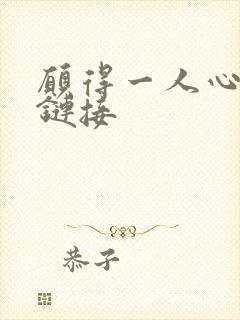 願得一人心
鏈接
恭子